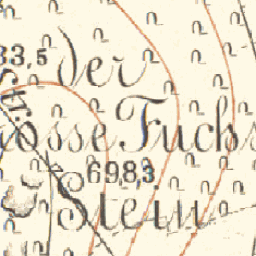 33,5
der
osse Fuchs
698,3
Stein